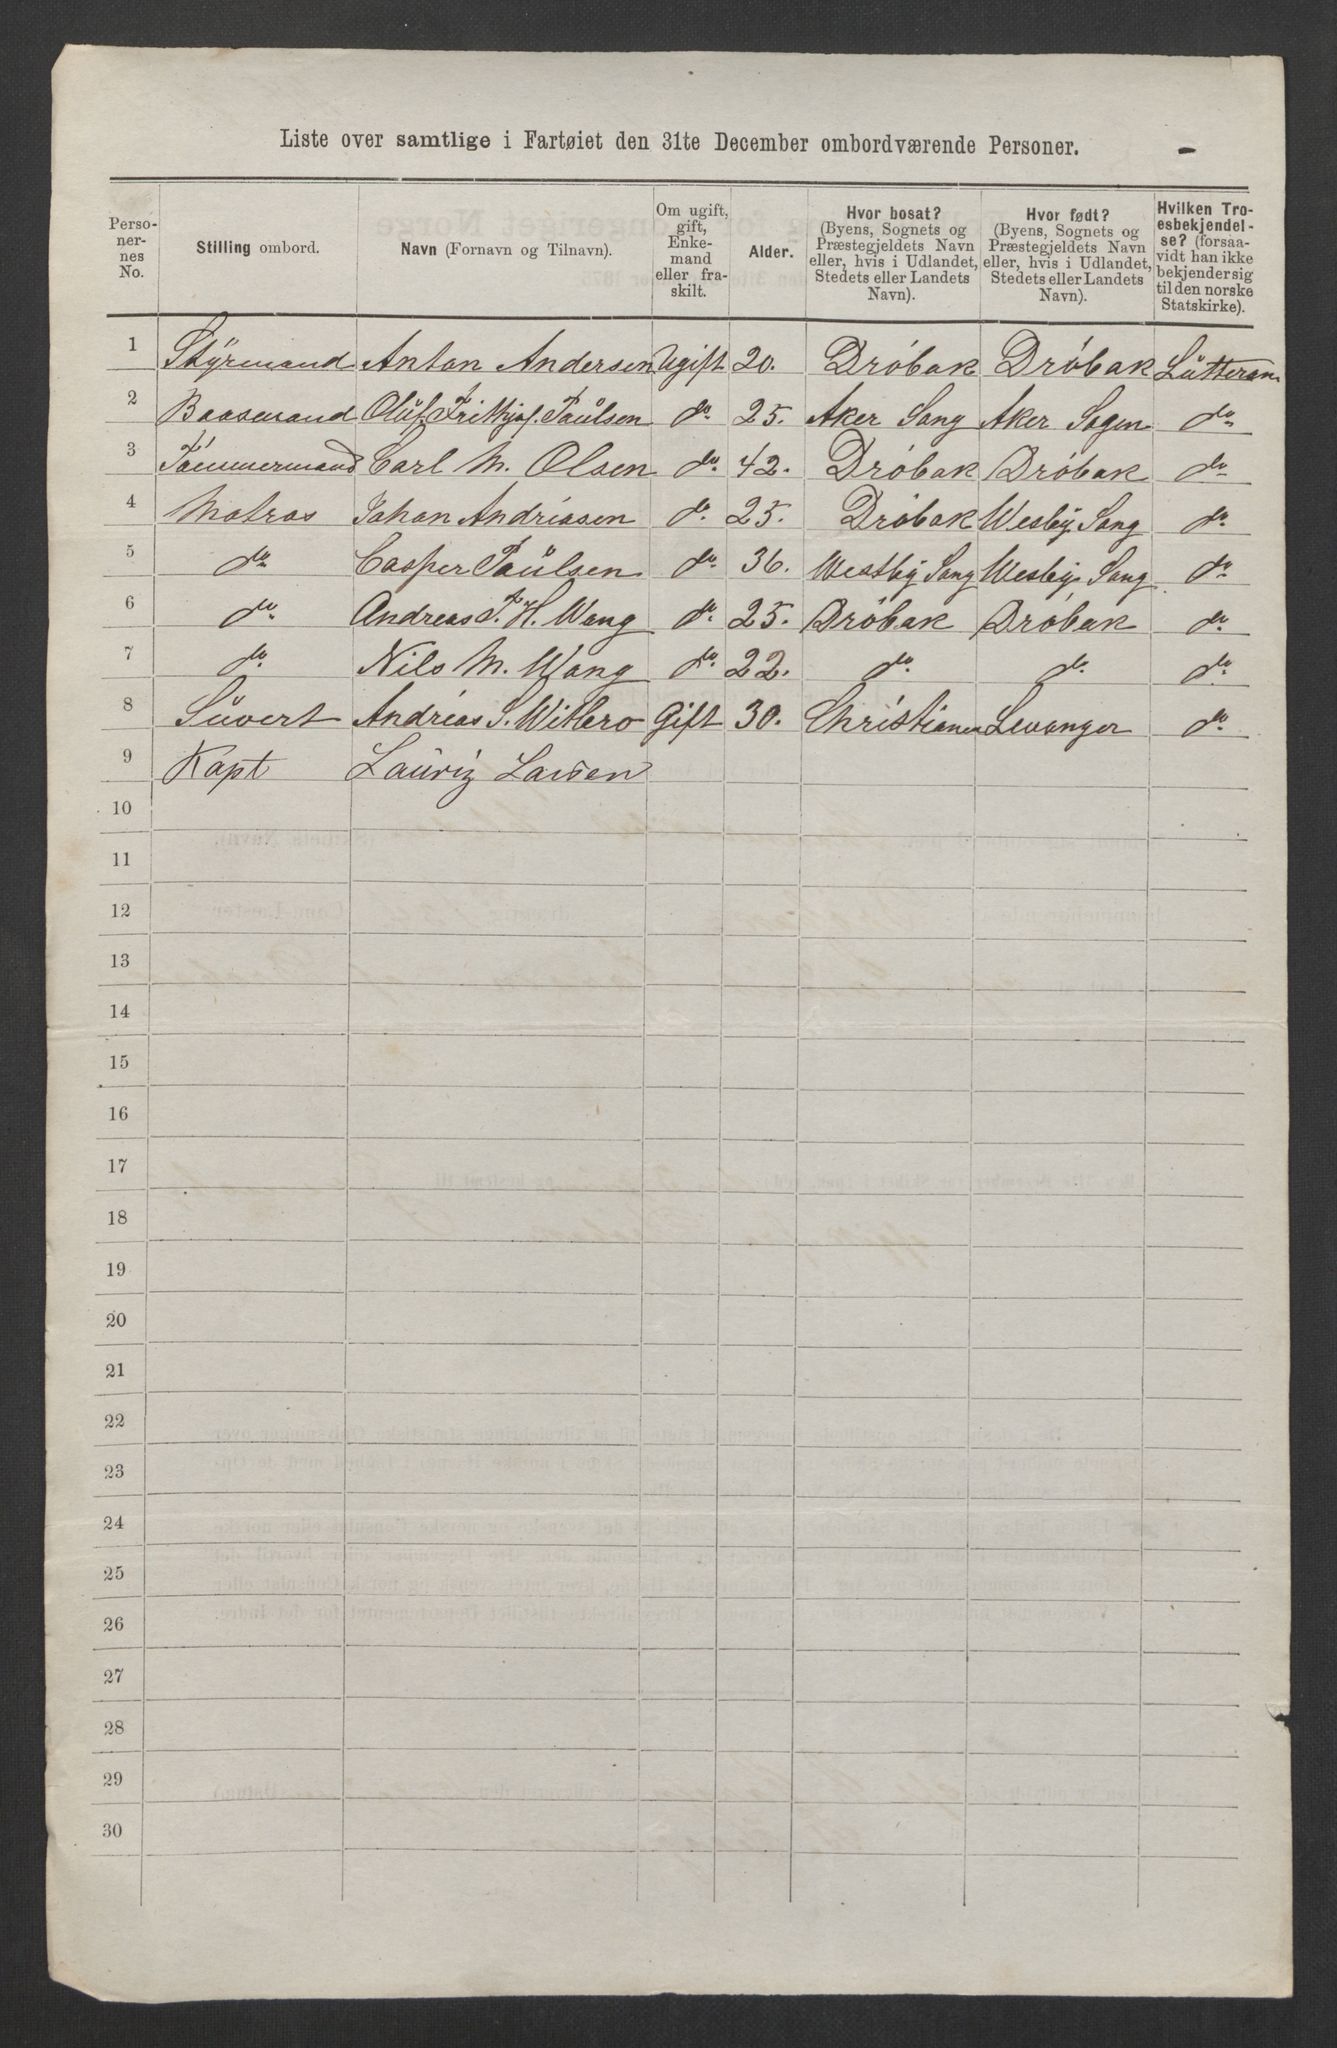 Liste over samtlige i Fartøiet den 31te December ombordværende Personer.
Perso-
ner-
nes
No.
Stilling ombord.
Navn (Fornavn og Tilnavn).
Om ugift,
gift,
Enke-
mand
eller fra-
skilt.
Alder.
Hvor bosat?
(Byens, Sognets og
Præstegjeldets Navn
eller, hvis i Udlandet,
Stedets eller Landets
Navn).
Hvor født?
(Byens, Sognets og
Præstegjeldets Navn
eller, hvis i Udlandet,
Stedets eller Landets
Navn).
Hvilken Tro-
esbekjendel-
se? (forsaa-
vidt han ikke
bekjender sig
til den norske
Statskirke).
1 Styrmand Anton Andersen Ugift 20. Dröbak Dröbak Lutteran
2 Baasmand Oluf. Frithjof. Paulsen do. 25. Aker Song Aker Sogen do
3 Tömmermand Carl M. Olsen do. 42. Dröbak Dröbak do
4 Matros Johan Andriasen do. 25. Dröbak Wesby Song do.
5 do Casper Paulsen do. 36. Westby Song Wesbye Song do.
6 do. Andreas F. H. Wang do. 25. Dröbak Dröbak do.
7 do. Nils M. Wang do. 22. do. do. do.
8 Suvert Andrias S. Witbero Gift 30. Christiania Levanger do.
9 Kapt Lauriz Larsen
10
11
12
13
14
15
16
17
18
19
20
21
22
23
24
25
26
27
28
29
30